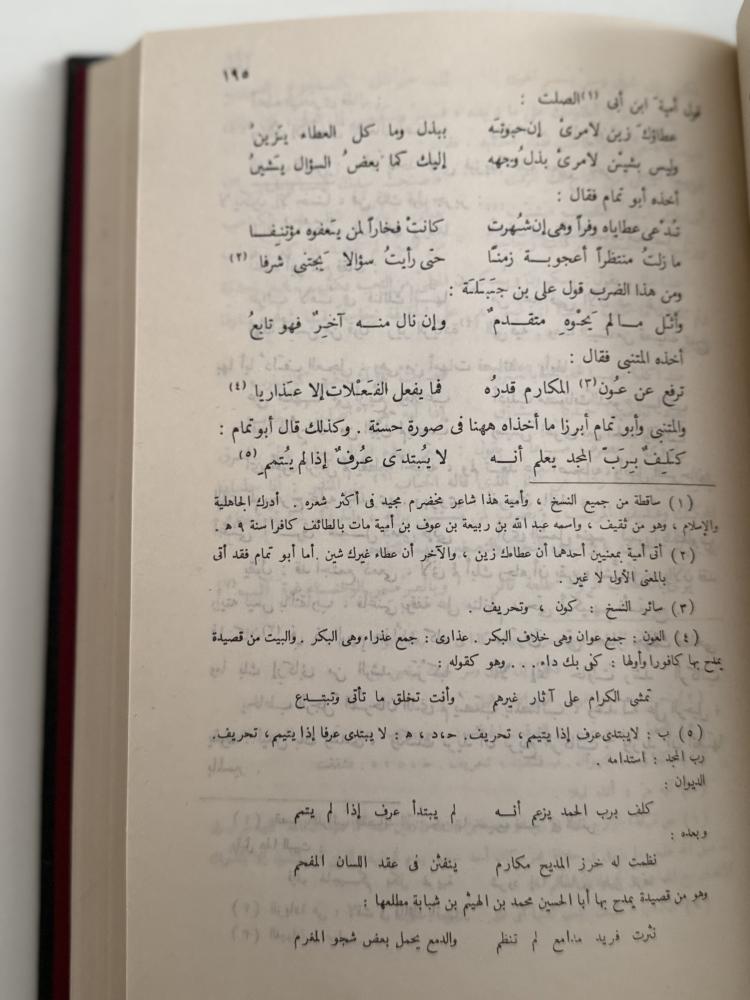 ١٩٥
قول أمية َ ابن أبى (١) الصلت :
عطاؤك َ زين لامرىء ٔ إن حبوته ببذل وما كل العطاء يَزين ُ
وليس بشيْن لامرىء ٔ بذل ُ وجهه إليك كما بعض ُ السؤال يَشينُ
أخذه أبو تمام فقال :
تُدْعى عطاياه وفراً وهى إن شُهرت كانتْ فخاراً لمن يَعفوه مؤتنِفا
ما زلتُ منتظراً أعجوبة زمنًا حتى رأيتُ سؤالا يَجتنى شرفا (٢)
ومن هذا الضرب قول على بن جَبَلة :
وأثّل ما لم يَحْوِهِ متقدم ٌ وإن نال منه آخِرٌ فهو تابعُ
أخذه المتنبى فقال :
ترفع عن عُون (٣) المكارم قدرُه فما يفعل الفَعْلات إلا عَذاريا (٤)
والمتنبى وأبو تمام أبرزا ما أخذاه ههنا فى صورة حسنة . وكذلك قال أبو تمام :
كَلِفٌ بِرَبّ المجد يعلم أنه لا يُبتدَى عُرفٌ إذا لم يُتمم ِ (٥)
(١) ساقطة من جميع النسخ ، وأمية هذا شاعر مخضرم مجيد فى أكثر شعره . أدرك الجاهلية
والإسلام ، وهو من ثقيف ، واسمه عبد الله بن ربيعة بن عوف بن أمية مات بالطائف كافرا سنة ٩ ه .
(٢) أتى أمية بمعنيين أحدهما أن عطاءك زين ، والآخر أن عطاء غيرك شين . أما أبو تمام فقد أتى
بالمعنى الأول لا غير .
(٣) سائر النسخ : كون ، وتحريف .
(٤) العون : جمع عوان وهى خلاف البكر . عذارى : جمع عذراء وهى البكر . والبيت من قصيدة
يمدح بها كافورا وأولها : كفى بك داء . . . وهو كقوله :
تمشى الكرام على آثار غيرهم وأنت تخلق ما تأتى وتبتدع
(٥) ب : لايبتدى عرف إذا يتيمم ، تحريف. ح ، د ، ه : لا يبتدى عرفا إذا يتيمم ، تحريف.
رب المجد : استدامه .
الديوان :
كلف برب الحمد يزعم أنه لم يبتدأ عرف إذا لم يتمم
وبعده :
نظمت له خرز المديح مكارم ينفثن فى عقد اللسان المفحم
وهو من قصيدة يمدح بها أبا الحسين محمد بن الهيثم بن شبابة مطلعها :
نثرت فريد مدامع لم تنظم والدمع يحمل بعض شجو المغرم